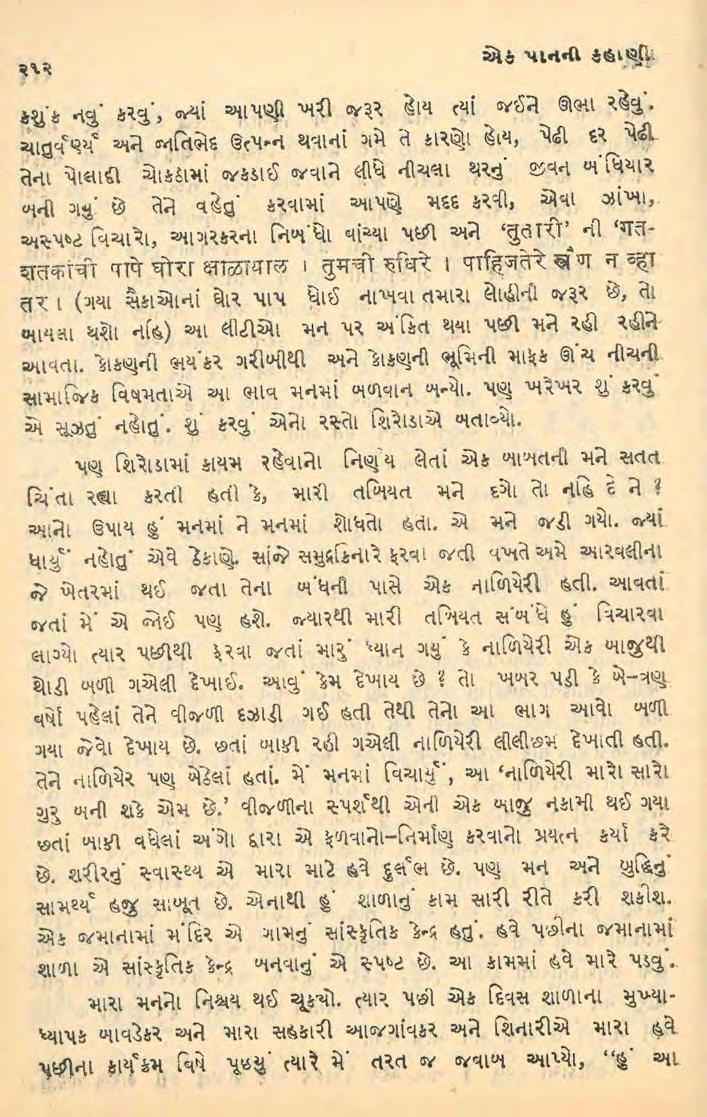 ૨૧૨
એક પાનની કહાણી
કશુંક નવું કરવું, જ્યાં આપણી ખરી જરૂર હોય ત્યાં જઈને ઊભા રહેવું.
ચાતુર્વર્ણ્ય અને જાતિભેદ ઉત્પન્ન થવાનાં ગમે તે કારણો હોય, પેઢી દર પેઢી
તેના પોલાદી ચોકઠામાં જકડાઈ જવાને લીધે નીચલા થરનું જીવન બંધિયાર
બની ગયું છે તેને વહેતું કરવામાં આપણે મદદ કરવી, એવા ઝાંખા,
અસ્પષ્ટ વિચારો, આગરકરના નિબંધો વાંચ્યા પછી અને ‘તુતારી’ ની ‘गत-
शतकांची पापे घोरा क्षाळायाल । तुमची रुधिरे । पाहिजतेरे स्त्रैण न व्हा
तर । (ગયા સૈકાઓનાં ઘોર પાપ ધોઈ નાખવા તમારા લોહીની જરૂર છે, તો
બાયલા થશો નહિ) આ લીટીઓ મન પર અંકિત થયા પછી મને રહી રહીને
આવતા. કોકણની ભયંકર ગરીબીથી અને કોકણની ભૂમિની માફક ઊંચ નીચની
સામાજિક વિષમતાએ આ ભાવ મનમાં બળવાન બન્યો. પણ ખરેખર શું કરવું
એ સૂઝતું નહોતું. શું કરવું એનો રસ્તો શિરોડાએ બતાવ્યો.
પણ શિરોડામાં કાયમ રહેવાનો નિર્ણય લેતાં એક બાબતની મને સતત
ચિંતા રહ્યા કરતી હતી કે, મારી તબિયત મને દગો તો નહિ દે ને ?
આનો ઉપાય હું મનમાં ને મનમાં શોધતો હતો. એ મને જડી ગયો. જ્યાં
ધાર્યું નહોતું એવે ઠેકાણે. સાંજે સમુદ્રકિનારે ફરવા જતી વખતે અમે આરવલીના
જે ખેતરમાં થઈ જતા તેના બંધની પાસે એક નાળિયેરી હતી. આવતાં
જતાં મેં એ જોઈ પણ હશે. જ્યારથી મારી તબિયત સંબંધે હું વિચારવા
લાગ્યો ત્યાર પછીથી ફરવા જતાં મારું ધ્યાન ગયું કે નાળિયેરી એક બાજુથી
થોડી બળી ગએલી દેખાઈ. આવું કેમ દેખાય છે ? તો ખબર પડી કે બે–ત્રણ
વર્ષો પહેલાં તેને વીજળી દઝાડી ગઈ હતી તેથી તેનો આ ભાગ આવો બળી
ગયા જેવો દેખાય છે. છતાં બાકી રહી ગએલી નાળિયેરી લીલીછમ દેખાતી હતી.
તેને નાળિયેર પણ બેઠેલાં હતાં. મેં મનમાં વિચાર્યું, આ ‘નાળિયેરી મારો સારો
ગુરુ બની શકે એમ છે.’ વીજળીના સ્પર્શથી એની એક બાજુ નકામી થઈ ગયા
છતાં બાકી વધેલાં અંગો દ્વારા એ ફળવાનો–નિર્માણ કરવાનો પ્રયત્ન કર્યા કરે
છે. શરીરનું સ્વાસ્થ્ય એ મારા માટે હવે દુર્લભ છે. પણ મન અને બુદ્ધિનું
સામર્થ્ય હજુ સાબૂત છે. એનાથી હું શાળાનું કામ સારી રીતે કરી શકીશ.
એક જમાનામાં મંદિર એ ગામનું સાંસ્કૃતિક કેન્દ્ર હતું. હવે પછીના જમાનામાં
શાળા એ સાંસ્કૃતિક કેન્દ્ર બનવાનું એ સ્પષ્ટ છે. આ કામમાં હવે મારે પડવું.
મારા મનનો નિશ્ચય થઈ ચૂક્યો. ત્યાર પછી એક દિવસ શાળાના મુખ્યા-
ધ્યાપક બાવડેકર અને મારા સહકારી આજગાંવકર અને શિનારીએ મારા હવે
પછીના કાર્યક્રમ વિષે પૂછ્યું ત્યારે મેં તરત જ જવાબ આપ્યો, “હું આ